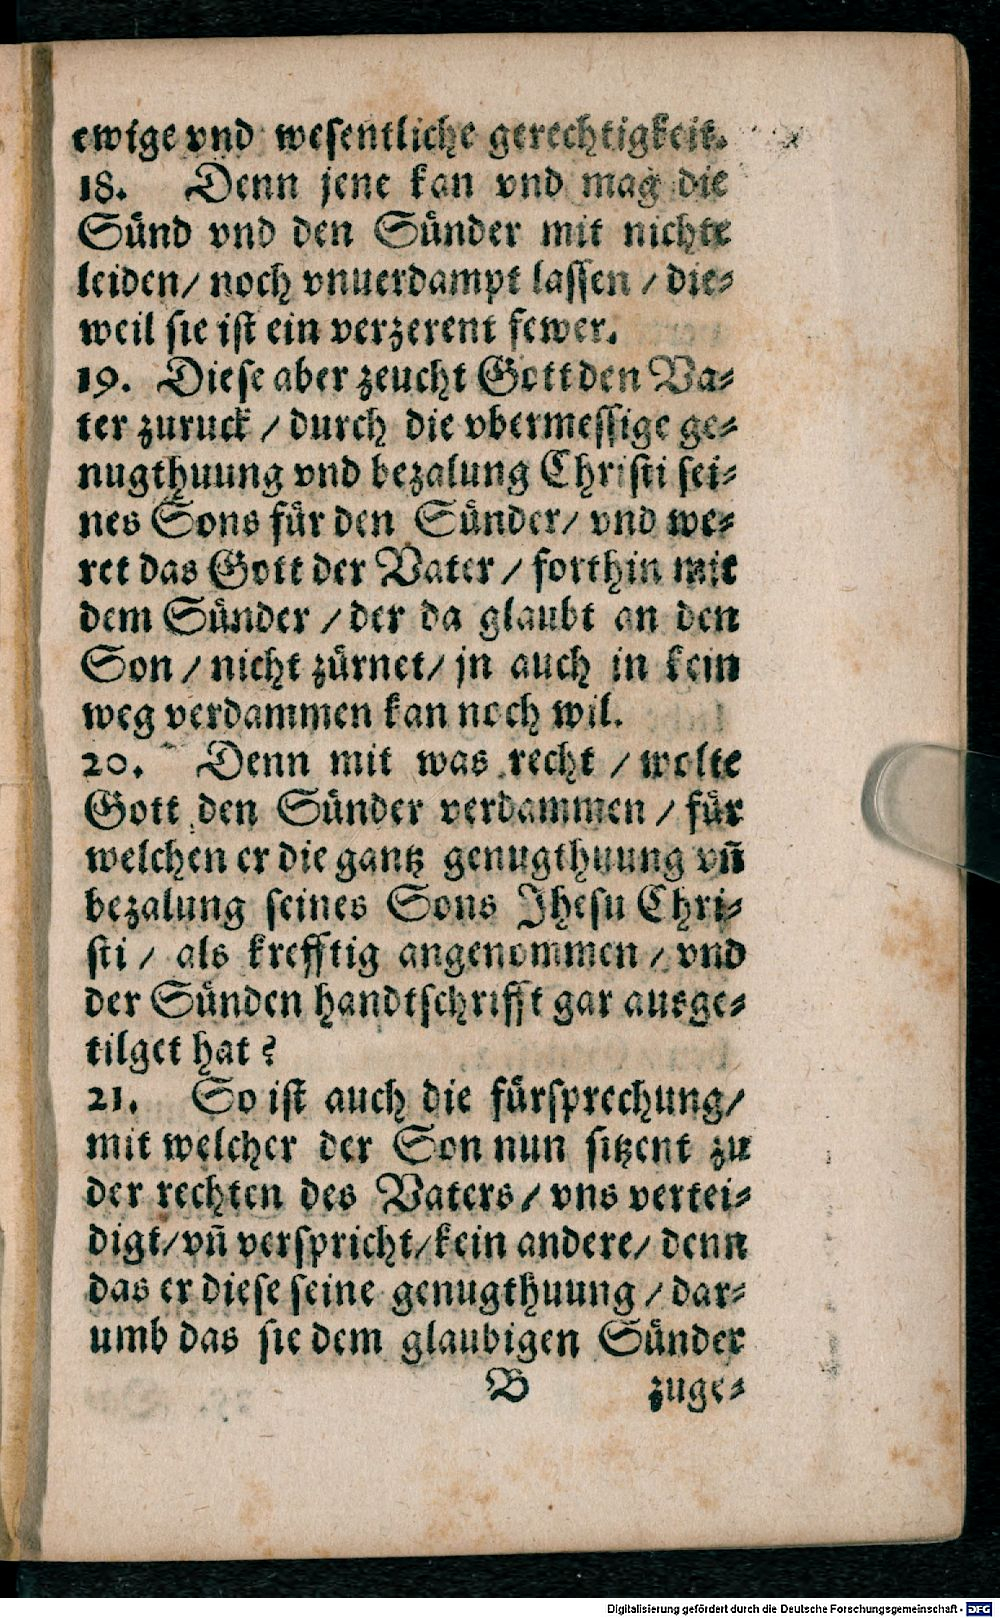 ewige vnd wesentliche gerechtigkeit.
18. Denn jene kan vnd mag die
Sünd vnd den Sünder mit nichte
leiden/ noch vnuerdampt lassen / die⸗
weil sie ist ein verzerent fewer.
19. Diese aber zeucht Gott den Va⸗
ter zuruck / durch die vbermessige ge⸗
nugthuung vnd bezalung Christi sei⸗
nes Sons für den Sünder/ vnd we⸗
ret das Gott der Vater / forthin mit
dem Sünder / der da glaubt an den
Son / nicht zürnet/ jn auch in kein
weg verdammen kan noch wil.
20. Denn mit was recht / wolte
Gott den Sünder verdammen / für
welchen er die gantz genugthuung vñ
bezalung seines Sons Jhesu Chri⸗
sti / als krefftig angenommen / vnd
der Sünden handtschrifft gar ausge⸗
tilget hat?
21. So ist auch die fürsprechung/
mit welcher der Son nun sitzent zu
der rechten des Vaters / vns vertei⸗
digt/ vñ verspricht/ kein andere/ denn
das er diese seine genugthuung / dar⸗
umb das sie dem glaubigen Sünder
B zuge⸗
Digitalisierung gefördert durch die Deutsche Forschungsgemeinschaft - DFG